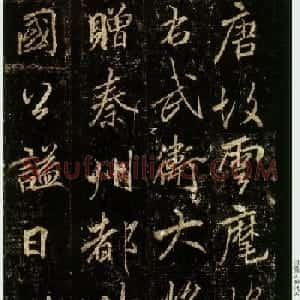 唐故雲麾將
右武衛大將
贈秦州都
國公謚曰
shufaziliao.com